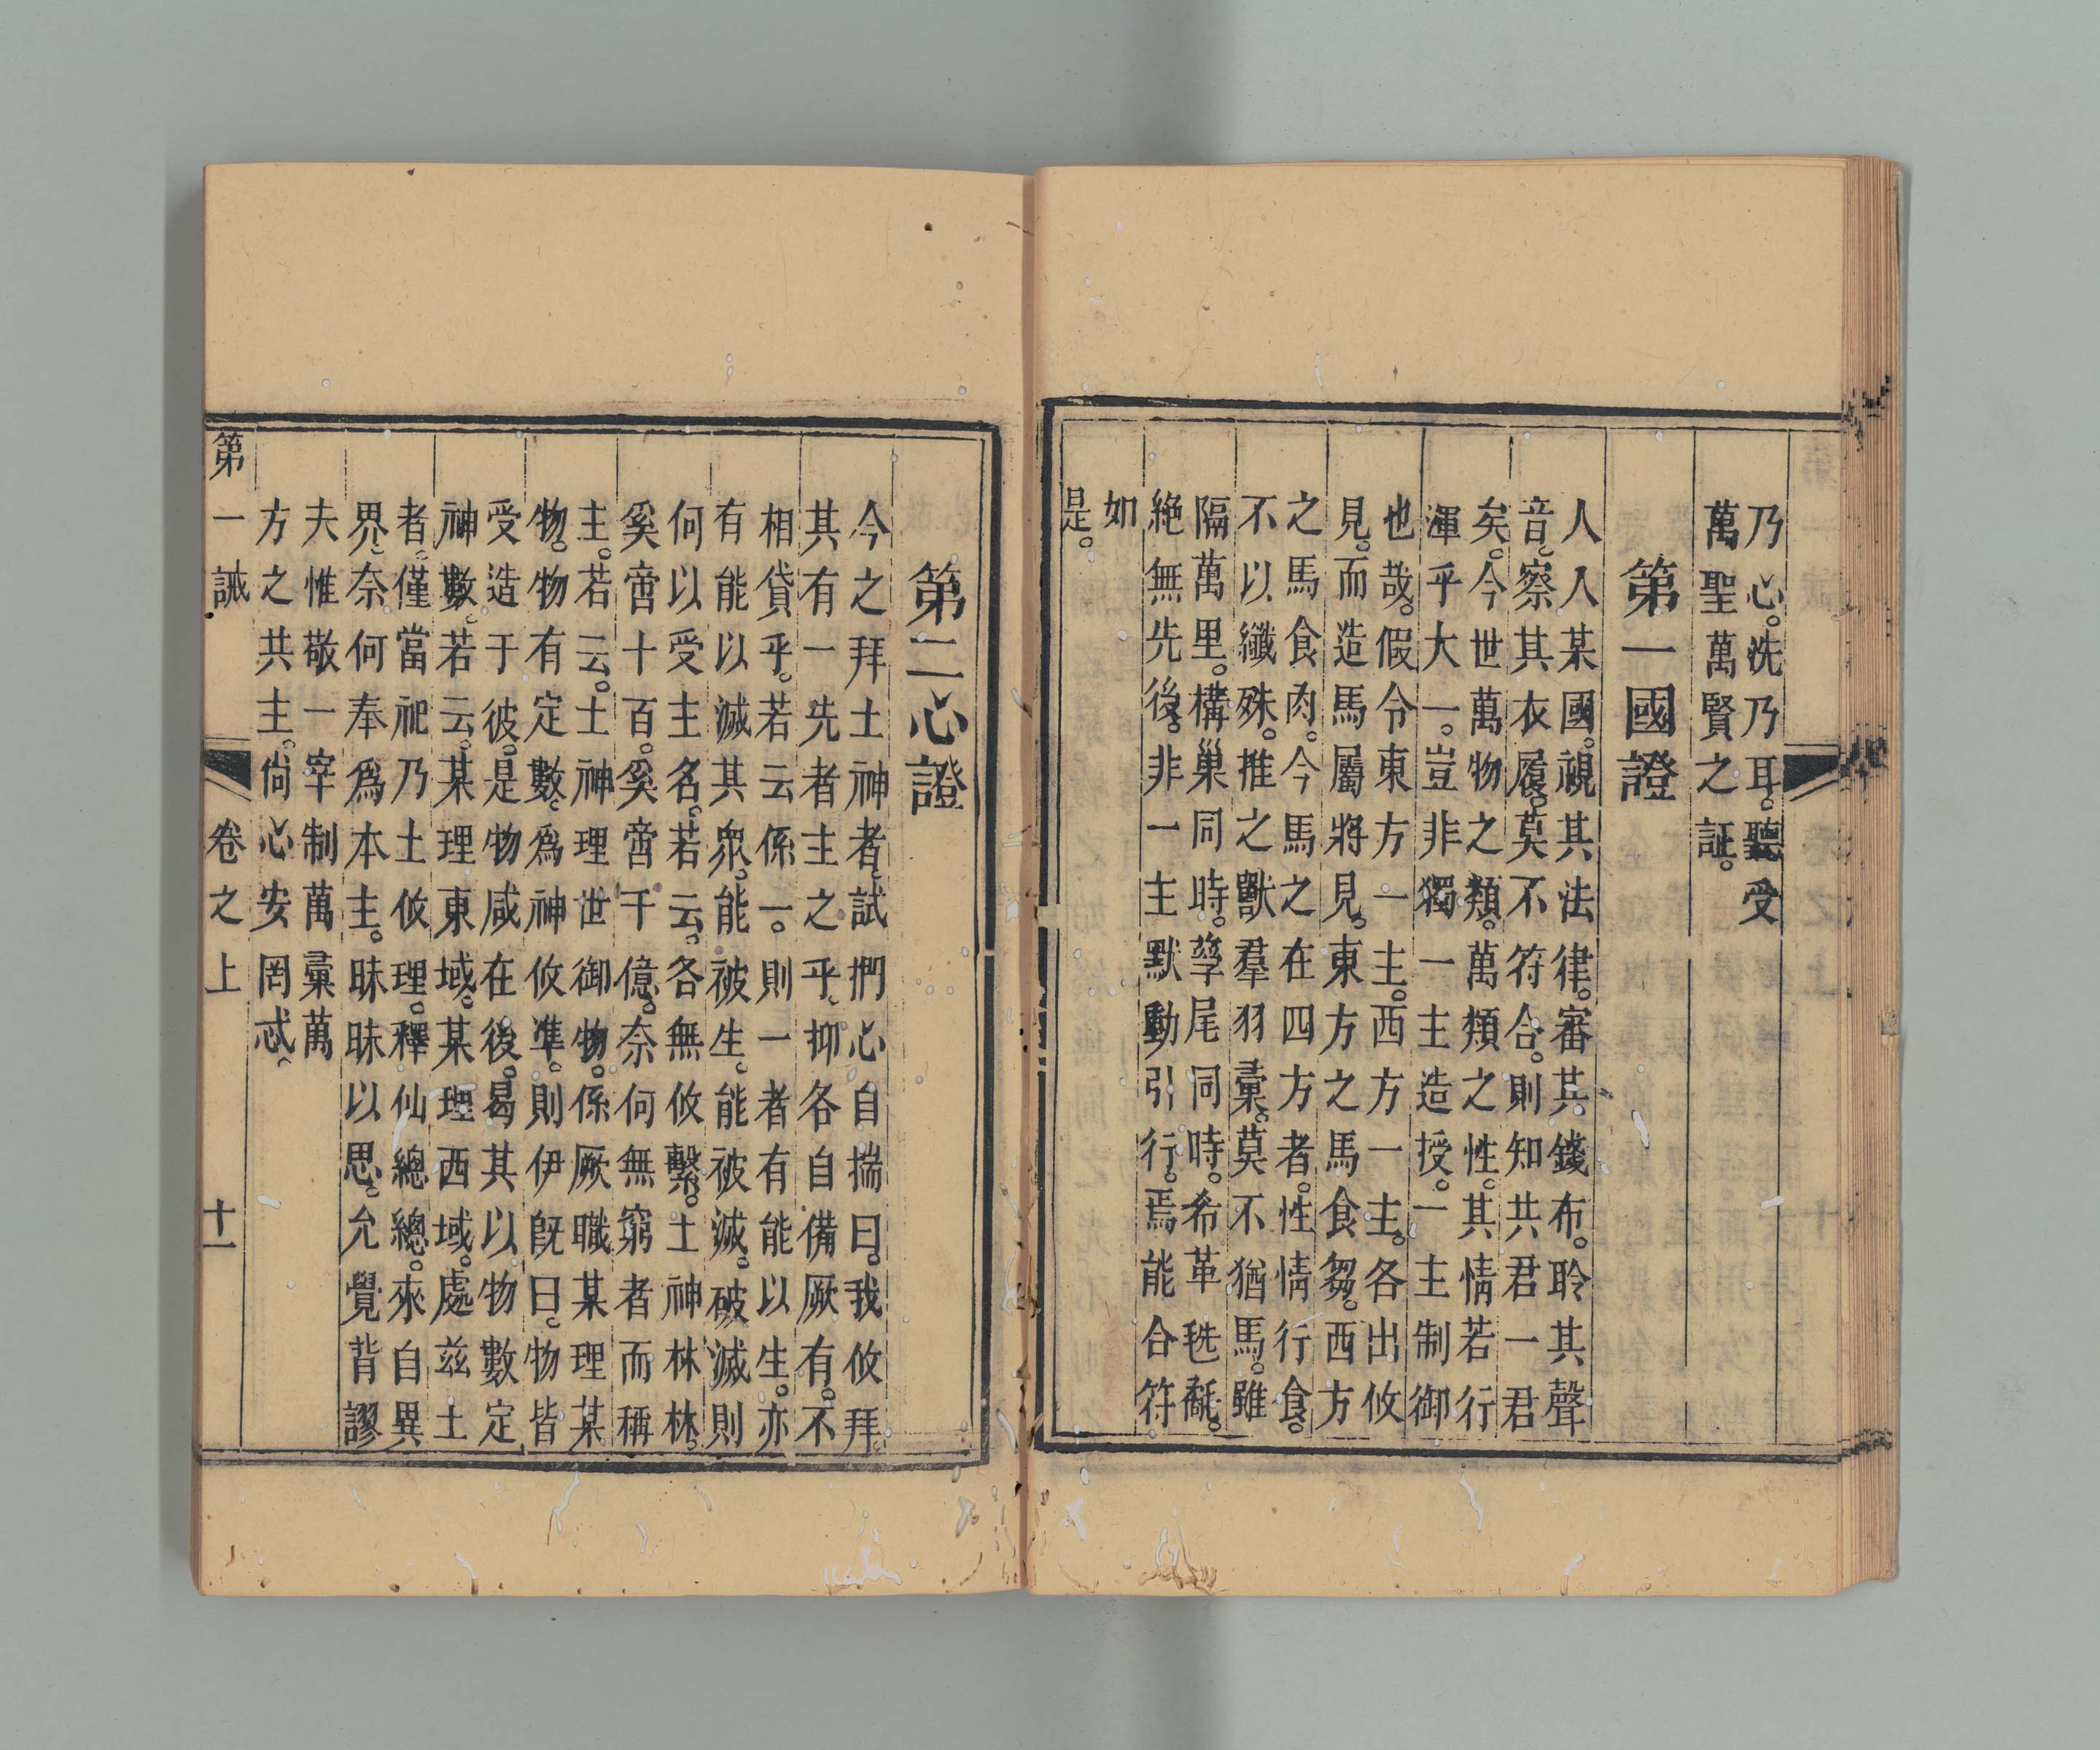 乃心。洗乃耳。聽受
萬聖萬賢之証。
第一國證
人人某國。視其法律。審其錢布。聆其聲
音。察其衣履。莫不符合。則知共君一君
矣。今世萬物之類。萬類之性。其情若行
渾乎大一。豈非獨一主造授。一主制御
也哉。假令東方一主。西方一主。各出攸
見。而造馬屬將見。東方之馬食芻。西方
之馬食肉。今馬之在四方者。性情行食。
不以纖殊。推之獸羣羽彙。莫不猶馬。雖
隔萬里。構巢同時。孳尾同時。希革毨氄。
絶無先後。非一主默動引行。焉能合符
如
是。
第二心證
今之拜土神者。試捫心自揣曰。我攸拜
其有一先者主之乎。抑各自備厥有。不
相貸乎。若云係一。則一者有能以生。亦
有能以滅其眾。能被生。能被滅。破滅則
何以受主名。若云。各無攸繫。土神林林。
奚啻十百。奚啻千億。奈何無窮者而稱
主。若云。土神理世御物。係厥職某理某
物。物有定數。爲神攸準。則伊旣曰。物皆
受造于彼。是物咸在後。曷其以物數定
神數。若云。某理東域。某理西域。處兹土
者。僅當祀乃土攸理。釋仙總總。來自異
界。奈何奉爲本主。昧昧以思。允覺背謬
夫惟敬一宰制萬彙萬
方之共主。尙心安罔忒。
第一誡　卷之上　十一